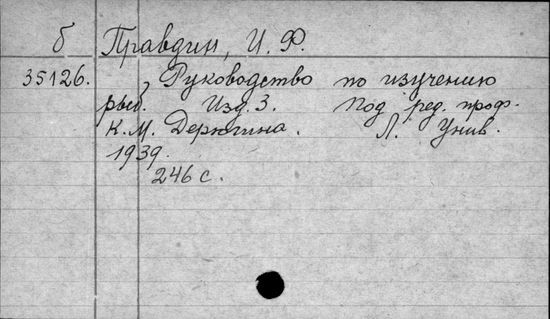 б Правдин, И. Ф.
35126. Руководство по изучению
рыб. Изд. 3. Под ред. проф.
К. М. Дерюгина. Л. Унив.
1939.
246 с.